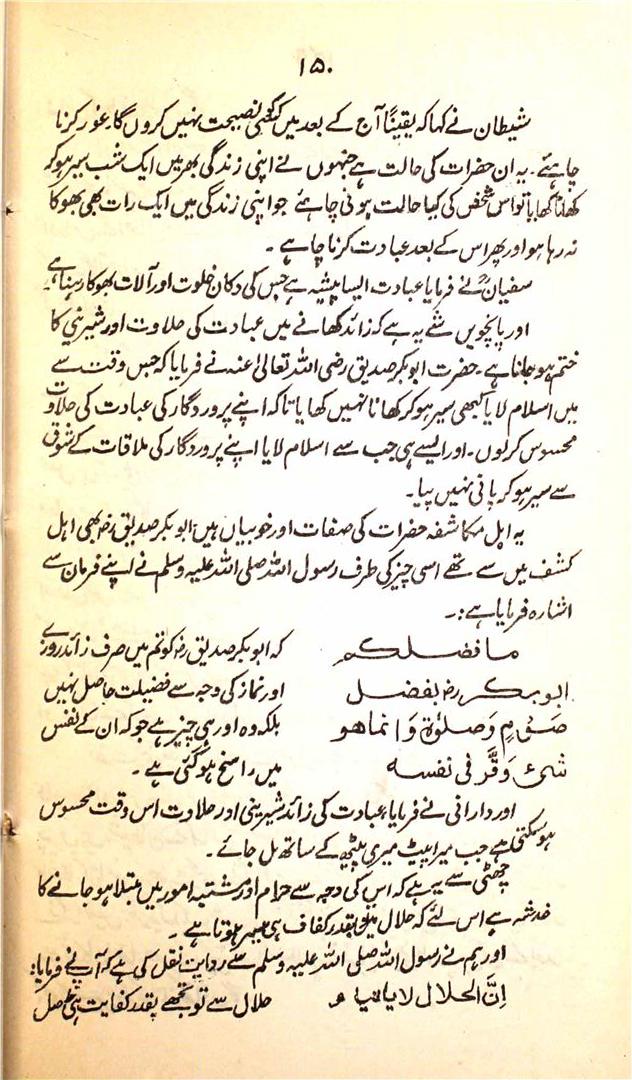 ۱۵۰
شیطان نے کہا کہ یقیناً آج کے بعد میں کسی کو نصیحت نہیں کروں گا۔ غور کرنا
چاہئے۔ یہ ان حضرات کی حالت ہے جنہوں نے اپنی زندگی بھر میں ایک شب سیر ہو کر
کھانا کھایا تو اس شخص کی کیا حالت ہونی چاہئے جو اپنی زندگی میں ایک رات بھی بھوکا
نہ رہا ہو اور پھر اس کے بعد عبادت کرنا چاہے۔
سفیانؒ نے فرمایا عبادت ایسا پیشہ ہے جس کی دکان خلوت اور آلات بھوکا رہنا ہے۔
اور پانچویں شے یہ ہے کہ زائد کھانے میں عبادت کی حلاوت اور شیرینی کا
ختم ہو جانا ہے۔ حضرت ابوبکر صدیق رضی اللہ تعالیٰ عنہ نے فرمایا کہ جس وقت سے
میں اسلام لایا کبھی سیر ہو کر کھانا نہیں کھایا تاکہ اپنے پروردگار کی عبادت کی حلاوت
محسوس کرلوں۔ اور ایسے ہی جب سے اسلام لایا اپنے پروردگار کی ملاقات کے شوق
سے سیر ہو کر پانی نہیں پیا۔
یہ اہل مکاشفہ حضرات کی صفات اور خوبیاں ہیں، ابوبکر صدیق رضؓ بھی اہل
کشف میں سے تھے اسی چیز کی طرف رسول اللہ صلی اللہ علیہ وسلم نے اپنے فرمان سے
اشارہ فرمایا ہے:۔
ما فضلکم
ابوبکر رضؓ بفضل
صَوْمٍ وَصلوٰة وَانما ھو
شئ وَقَّر فی نفسه
کہ ابوبکر صدیق رضؓ کو تم میں صرف زائد روزے
اور نماز کی وجہ سے فضیلت حاصل نہیں
بلکہ وہ اور ہی چیز ہے جو کہ ان کے نفس
میں راسخ ہو گئی ہے۔
اور دارانی نے فرمایا، عبادت کی زائد شیرینی اور حلاوت اس وقت محسوس
ہو سکتی ہے جب میرا پیٹ میری پیٹھ کے ساتھ مل جائے۔
چھٹی شے یہ ہے کہ اس کی وجہ سے حرام اور مشتبہ امور میں مبتلا ہو جانے کا
خدشہ ہے اس لئے کہ حلال بقدر کفاف ہی میسر ہوتا ہے۔
اور ہم نے رسول اللہ صلی اللہ علیہ وسلم سے روایت نقل کی ہے کہ آپؐ نے فرمایا:
اِنَّ الحلال لا یاتیك
حلال سے تو تجھے بقدر کفایت ہی حاصل